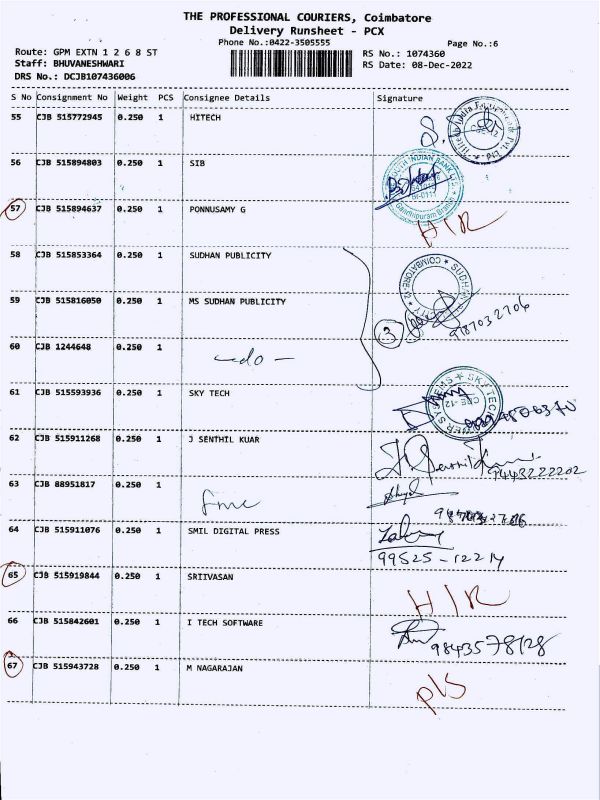 THE PROFESSIONAL COURIERS, Coimbatore
Delivery Runsheet - PCX
Phone No.:0422-3505555
Page No.:6
Route: GPM EXTN 1 2 6 8 ST
RS No.: 1074360
Staff: BHUVANESHWARI
RS Date: 08-Dec-2022
DRS No.: DCJB107436006
S No Consignment No Weight PCS Consignee Details Signature
55 CJB 515772945 0.250 1 HITECH
56 CJB 515894803 0.250 1 SIB
SOUTH INDIAN BANK
Gandhipuram Branch
57 CJB 515894637 0.250 1 PONNUSAMY G
H/R
58 CJB 515853364 0.250 1 SUDHAN PUBLICITY
COIMBATORE-12 SUDHAN
59 CJB 515816050 0.250 1 MS SUDHAN PUBLICITY
3
9787032706
60 CJB 1244648 0.250 1 -do-
61 CJB 515593936 0.250 1 SKY TECH
SKY TECH
CBE-12
62 CJB 515911268 0.250 1 J SENTHIL KUAR
9443222202
63 CJB 88951817 0.250 1
64 CJB 515911076 0.250 1 SMIL DIGITAL PRESS
99525-12214
65 CJB 515919844 0.250 1 SRIIVASAN
H/R
66 CJB 515842601 0.250 1 I TECH SOFTWARE
9843578128
67 CJB 515943728 0.250 1 M NAGARAJAN
P/S